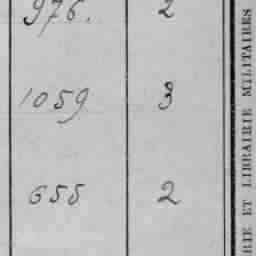 976. 2
1059 3
655 2
RIE ET LIBRAIRIE MILITAIRES